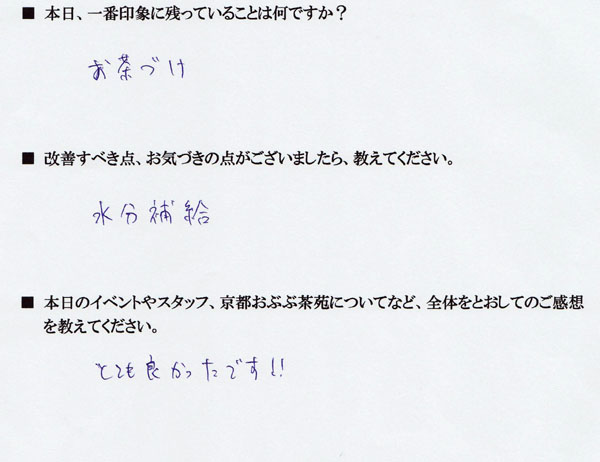 ■ 本日、一番印象に残っていることは何ですか？
お茶づけ
■ 改善すべき点、お気づきの点がございましたら、教えてください。
水分補給
■ 本日のイベントやスタッフ、京都おぶぶ茶苑についてなど、全体をとおしてのご感想
を教えてください。
とても良かったです!!